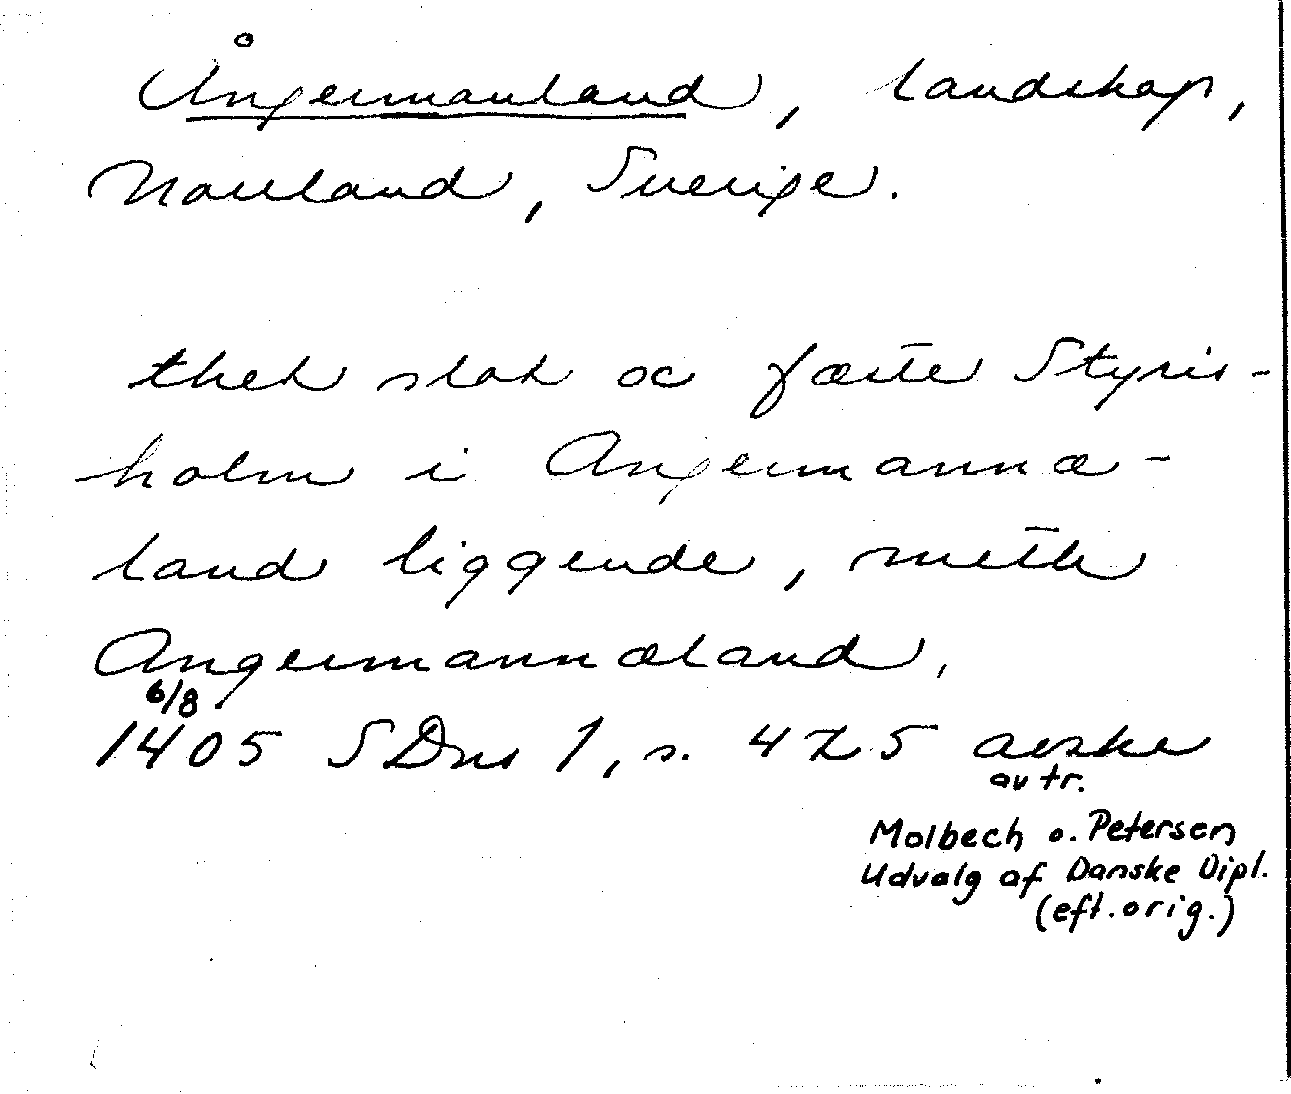 Ångermanland, landskap,
Norrland, Sverige.
thet slot oc fæste Styris-
holm i Angermannæ-
land liggende, meth
Angermannæland,
6/8
1405 SDns 1, s. 425
avtr.
Molbech o. Petersen
Udvalg af Danske Dipl.
(eft. orig.)